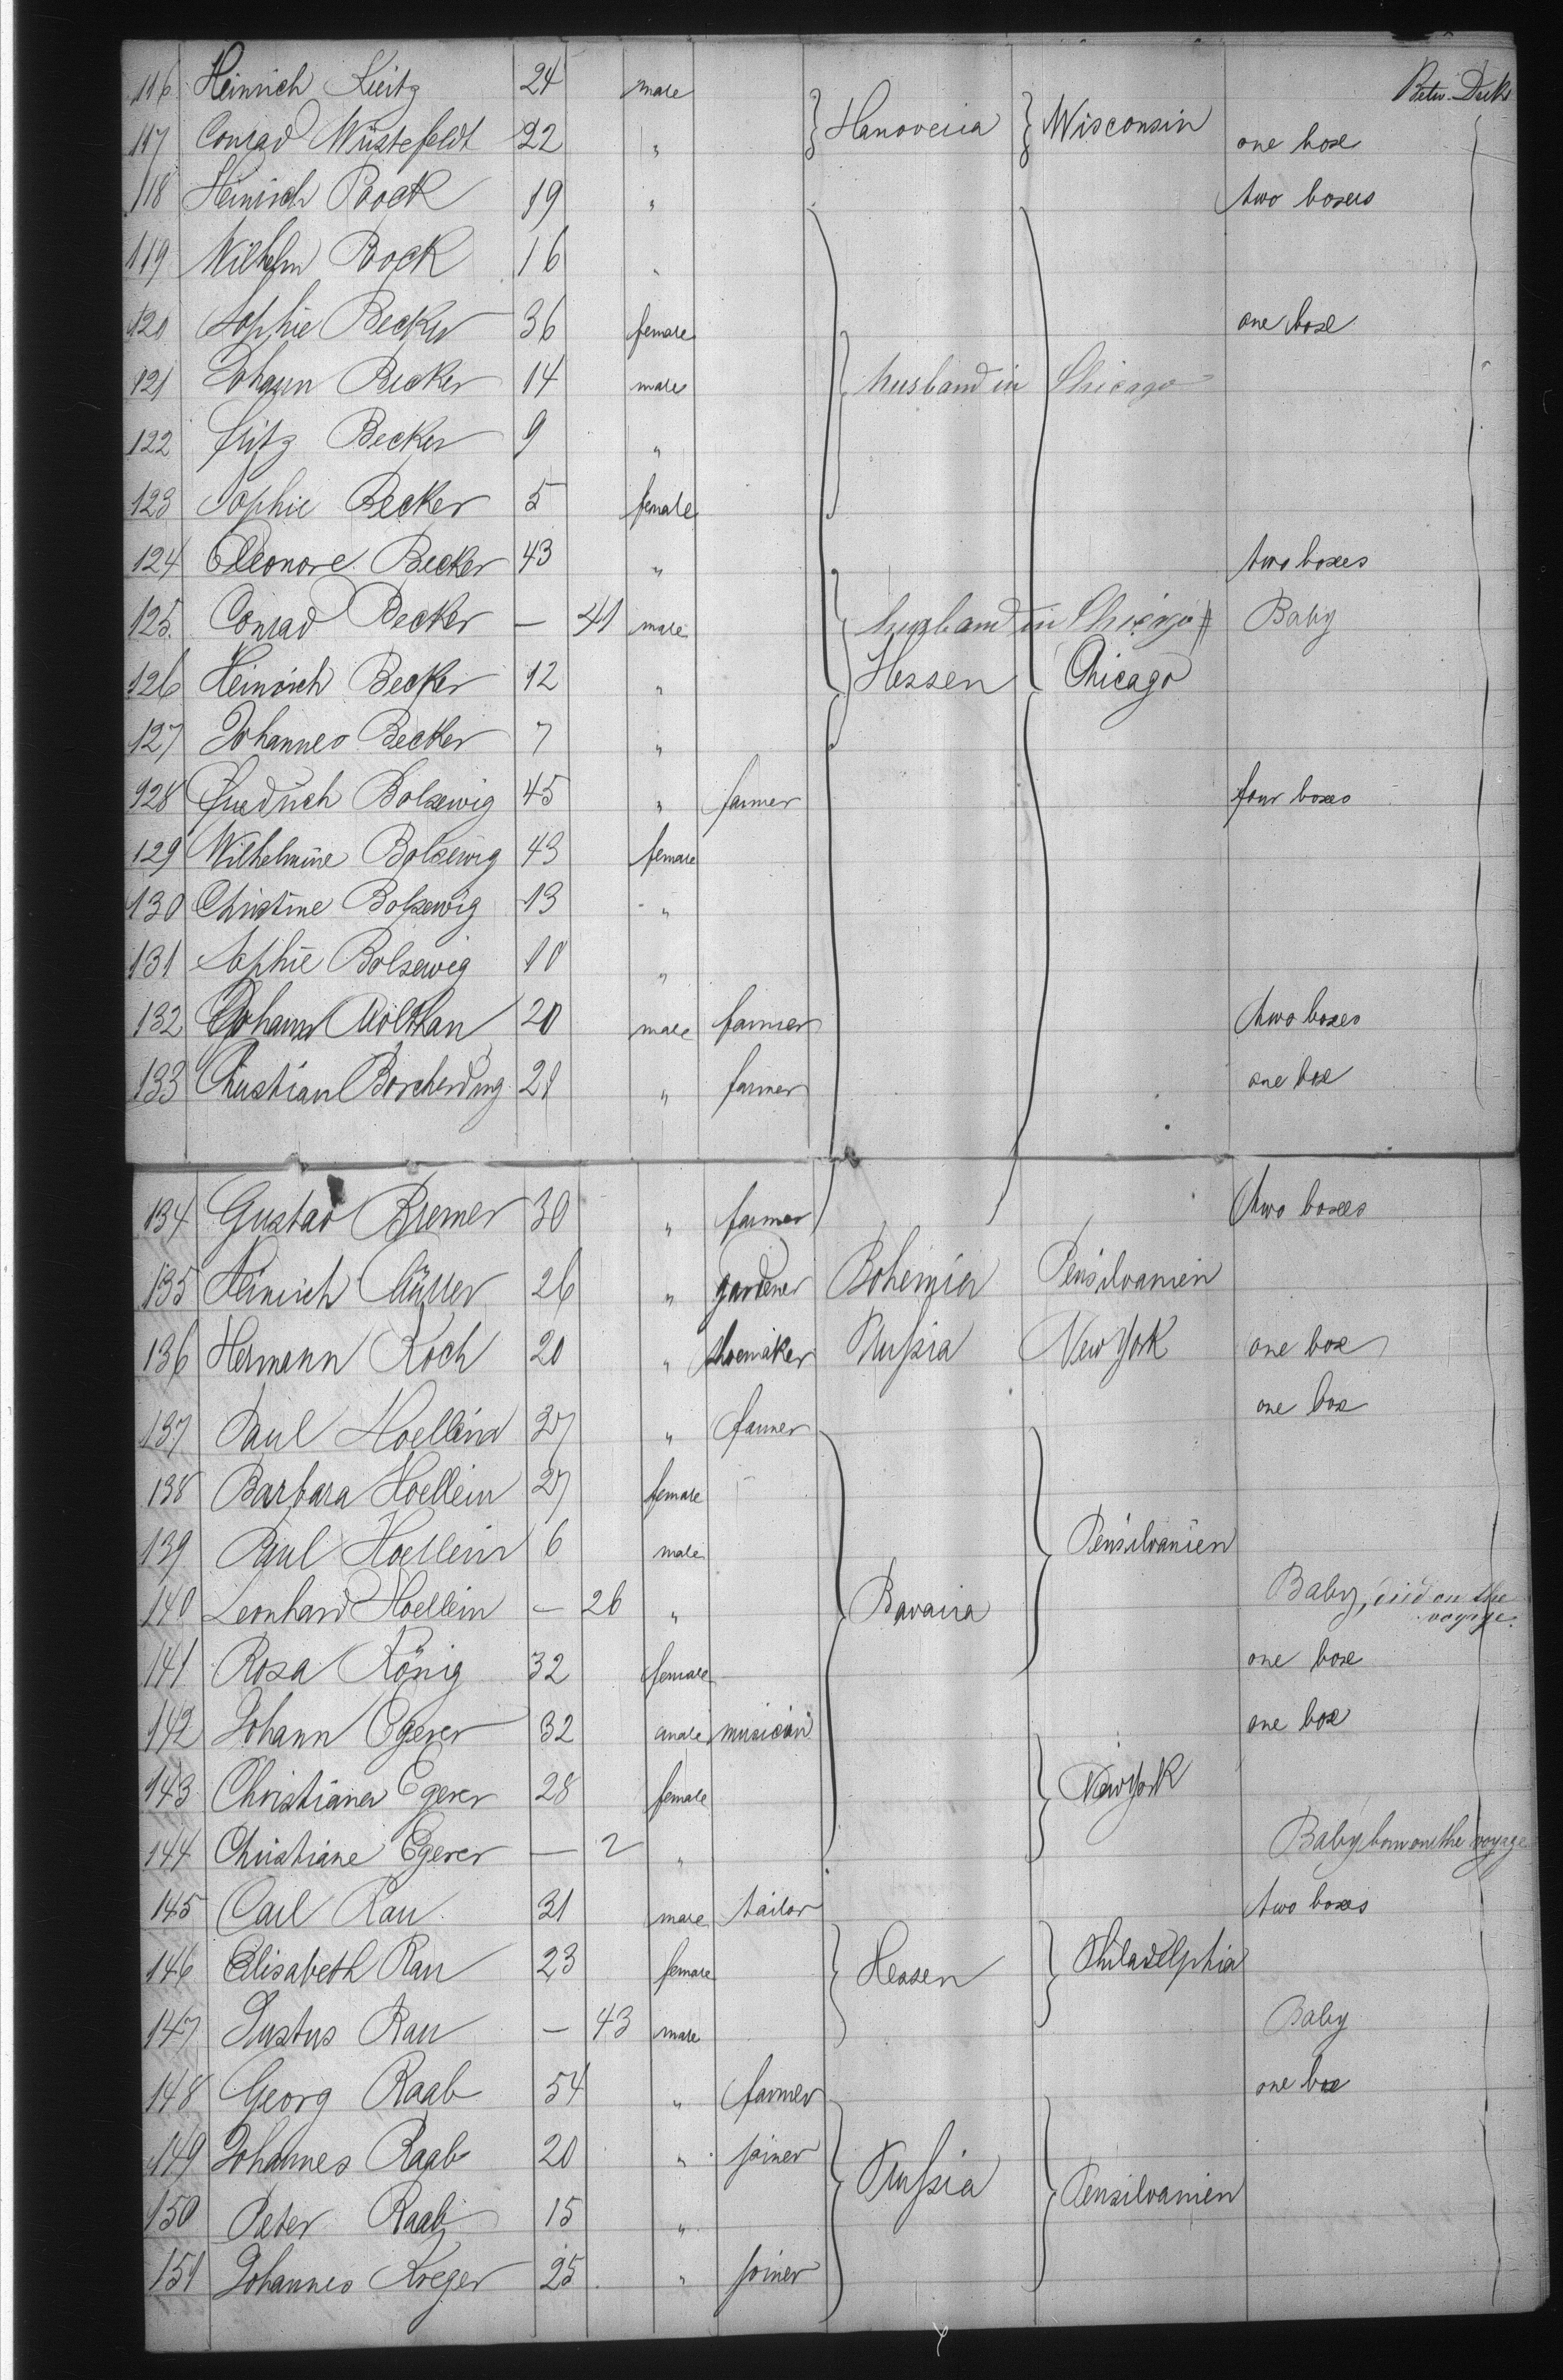 Betw. Decks
116 Heinrich 24 male
117 Conrad Wüstefeldt 22 " } Hanoveria } Wisconsin one box
118 Heinrich Bock 19 " two boxes
119 Wilhelm Bock 16 "
120 Sophie Becker 36 female one box
121 Johann Becker 14 male husband in Chicago
122 Fritz Becker 9 "
123 Sophie Becker 5 female
124 Eleonore Becker 43 " two boxes
125. Conrad Becker — 41 male husband in Chicago Baby
126 Heinrich Becker 12 " Hessen Chicago
127 Johannes Becker 7 "
128 Friedrich Bolzewig 45 " farmer four boxes
129 Wilhelmine Bolzewig 43 female
130 Christine Bolzewig 13 "
131 Sophie Bolzewig 10 "
132 Johann 20 male farmer two boxes
133 Christian Borcherding 21 " farmer one box
134 Gustav Bremer 30 " farmer two boxes
135 Heinrich Müller 26 " gardener Bohemia Pensilvanien
136 Hermann Koch 20 " shoemaker Prußia New York one box
137 Paul Hoellein 37 " farmer one box
138 Barbara Hoellein 27 female
139 Paul Hoellein 6 male Pensilvanien
140 Leonhard Hoellein — 26 " Bavaria Baby, died on the voyage.
141 Rosa König 32 female one box
142 Johann Egerer 32 male musician one box
143 Christiane Egerer 28 female New York
144 Christiane Egerer — 2 " Baby born on the voyage
145 Carl Rau 31 male tailor two boxes
146 Elisabeth Rau 23 female Hessen Philadelphia
147 Justus Rau — 43 male Baby
148 Georg Raab 54 " farmer one box
149 Johannes Raab 20 " joiner
150 Peter Raab 15 " Prußia Pensilvanien
151 Johannes Kreger 25 " joiner